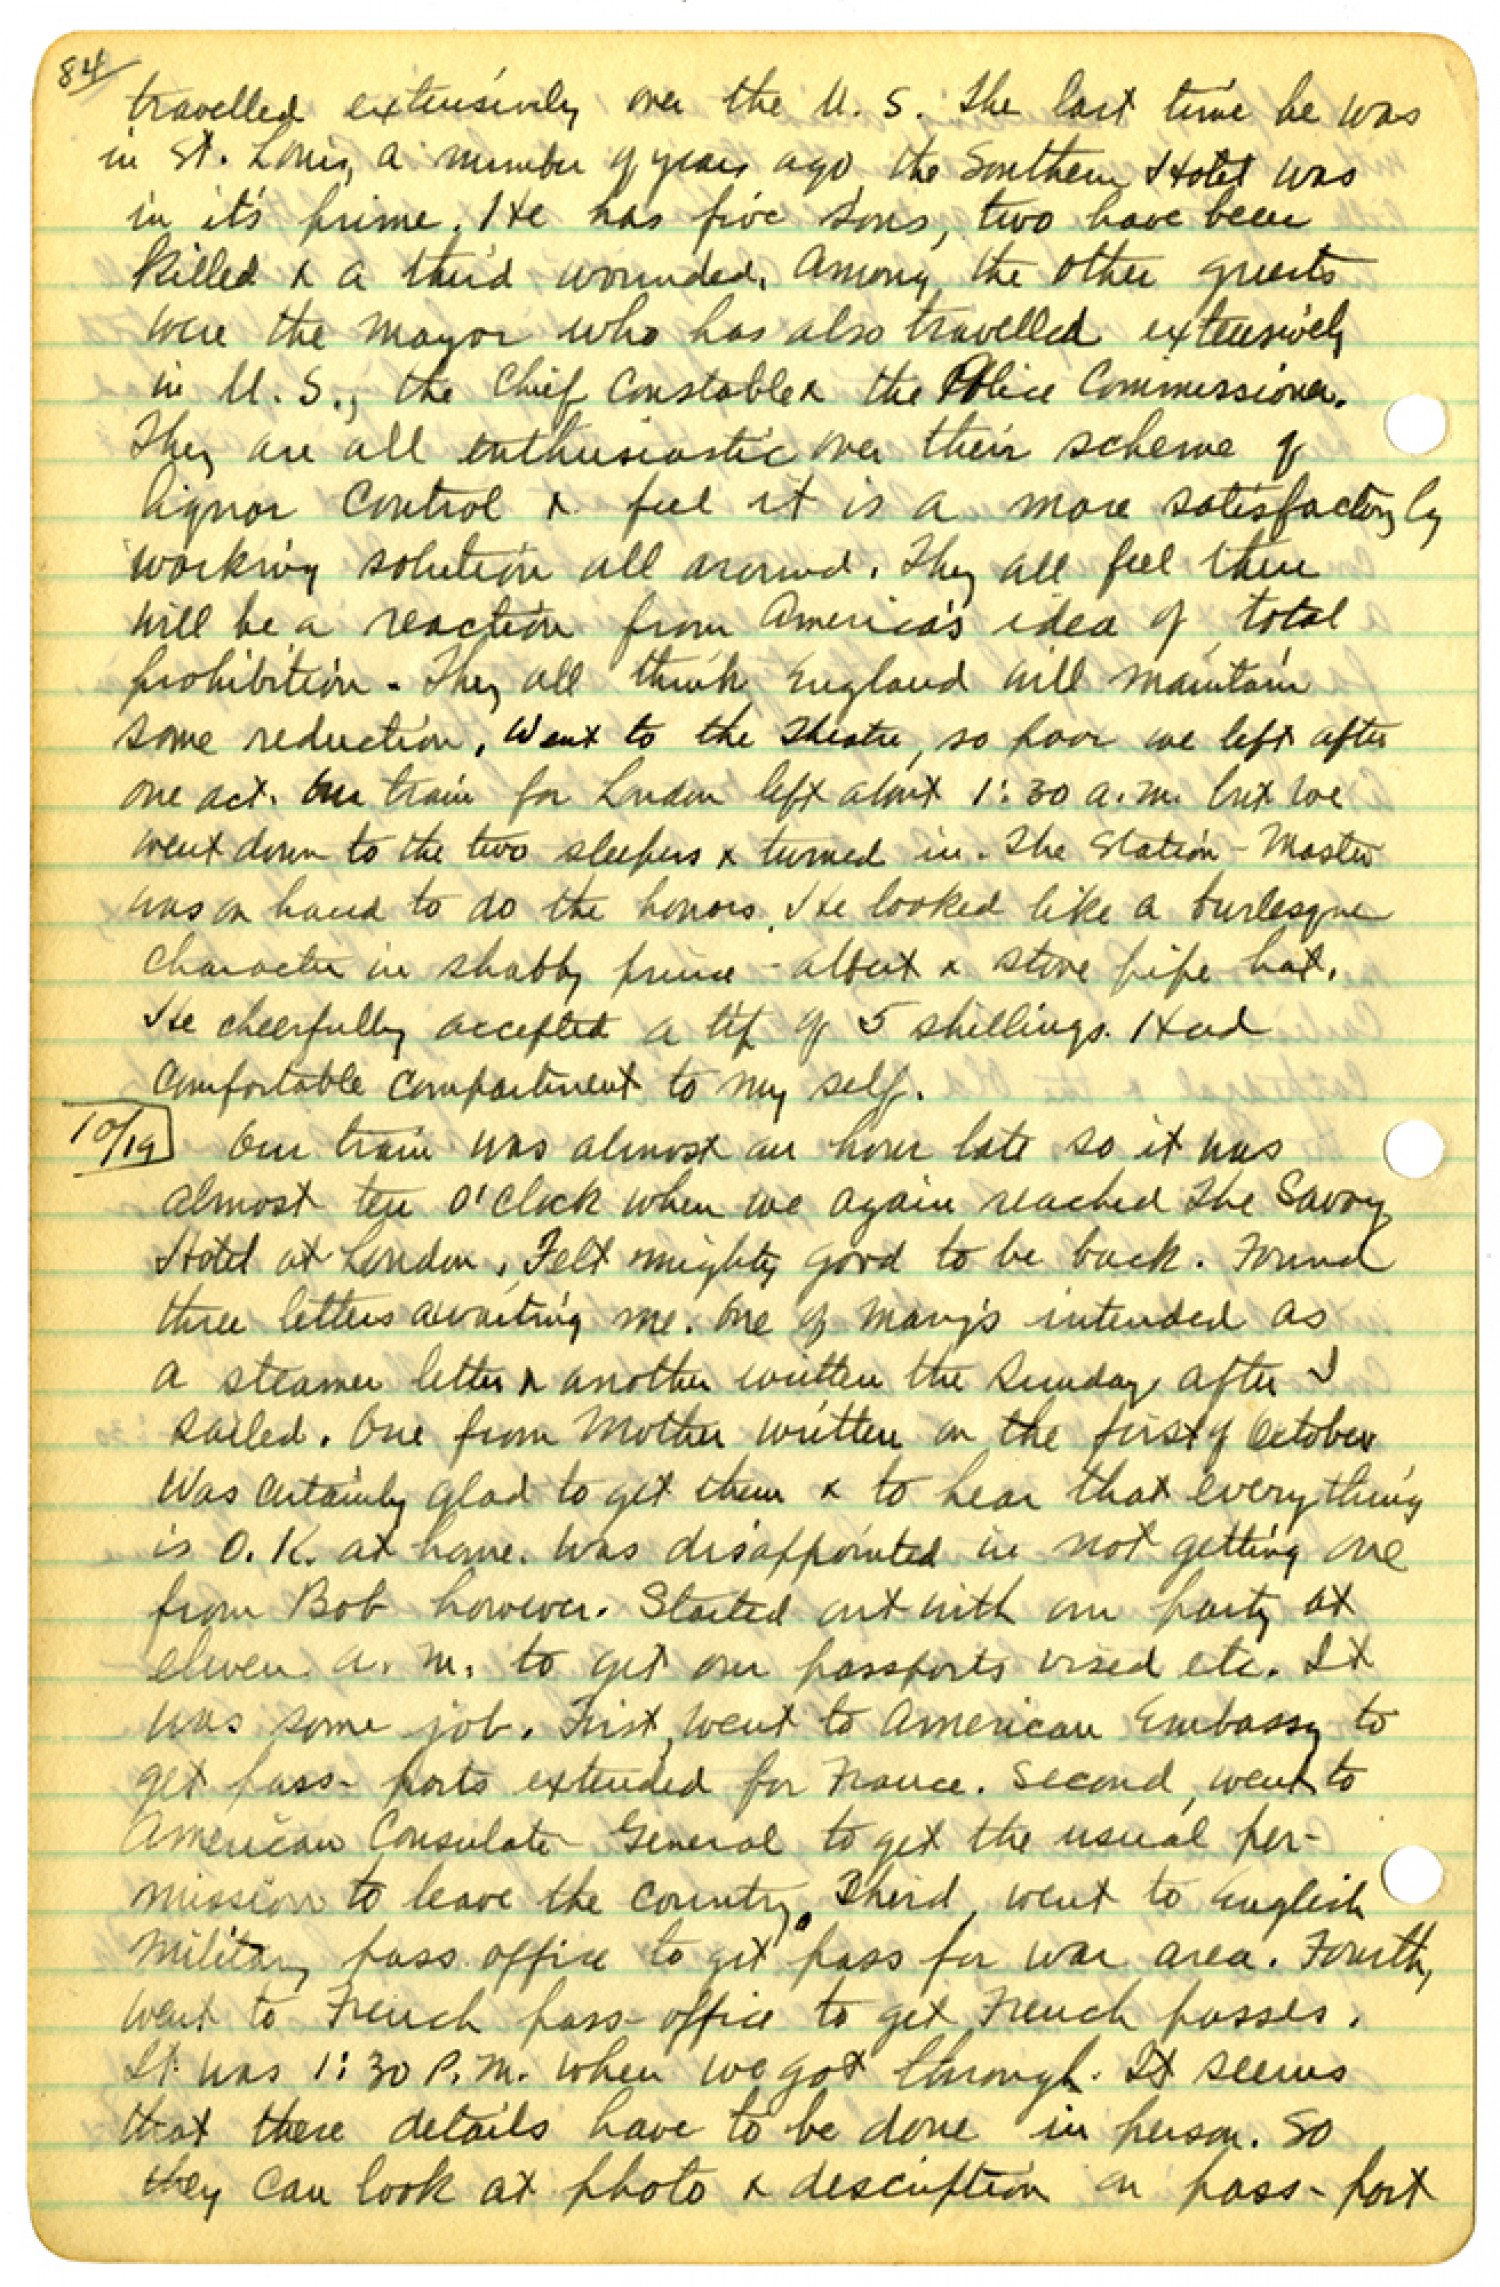 84
travelled extensively over the U. S. The last time he was
in St. Louis, a number of years ago, the Southern Hotel was
in it's prime. He has five sons, two have been
killed & a third wounded. Among the other guests
were the Mayor who has also travelled extensively
in U. S., the Chief Constable & the Police Commissioner.
They are all enthusiastic over their scheme of
liquor control & feel it is a more satisfactorily
working solution all around. They all feel there
will be a reaction from America's idea of total
prohibition - They all think England will maintain
some reduction. Went to the Theatre, so poor we left after
one act. Our train for London left about 1:30 a.m. but we
went down to the two sleepers & turned in. The Station-Master
was on hand to do the honors. He looked like a burlesque
character in shabby prince-albert & stove pipe hat.
He cheerfully accepted a tip of 5 shillings. Had
comfortable compartment to my self.
10/19 Our train was almost an hour late so it was
almost ten o'clock when we again reached the Savoy
Hotel at London. Felt mighty good to be back. Found
three letters awaiting me. One of Mary's intended as
a steamer letter & another written the Sunday after I
sailed. One from Mother written on the first of October
Was certainly glad to get them & to hear that everything
is O. K. at home. Was disappointed in not getting one
from Bob however. Started out with our party at
eleven a. m. to get our passports vised etc. It
was some job. First, went to American Embassy to
get pass-ports extended for France. Second, went to
American Consulate General to get the usual per-
mission to leave the country. Third, went to English
Military pass office to get pass for war area. Fourth,
went to French pass-office to get French passes.
It was 1:30 P.M. when we got through. It seems
that these details have to be done in person. So
they can look at photo & description on pass-port